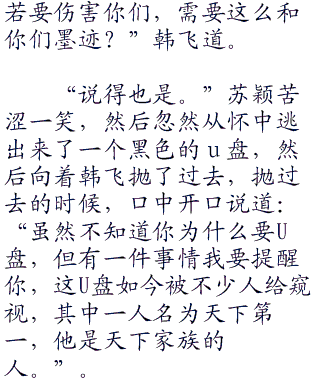 若要伤害你们，需要这么和
你们墨迹？”韩飞道。
“说得也是。”苏颖苦
涩一笑，然后忽然从怀中逃
出来了一个黑色的u盘，然
后向着韩飞抛了过去，抛过
去的时候，口中开口说道：
“虽然不知道你为什么要U
盘，但有一件事情我要提醒
你，这U盘如今被不少人给窥
视，其中一人名为天下第
一，他是天下家族的
人。”。